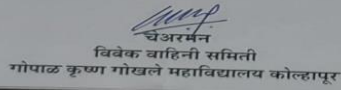 चेअरमन
विवेक वाहिनी समिती
गोपाळ कृष्ण गोखले महाविद्यालय कोल्हापूर